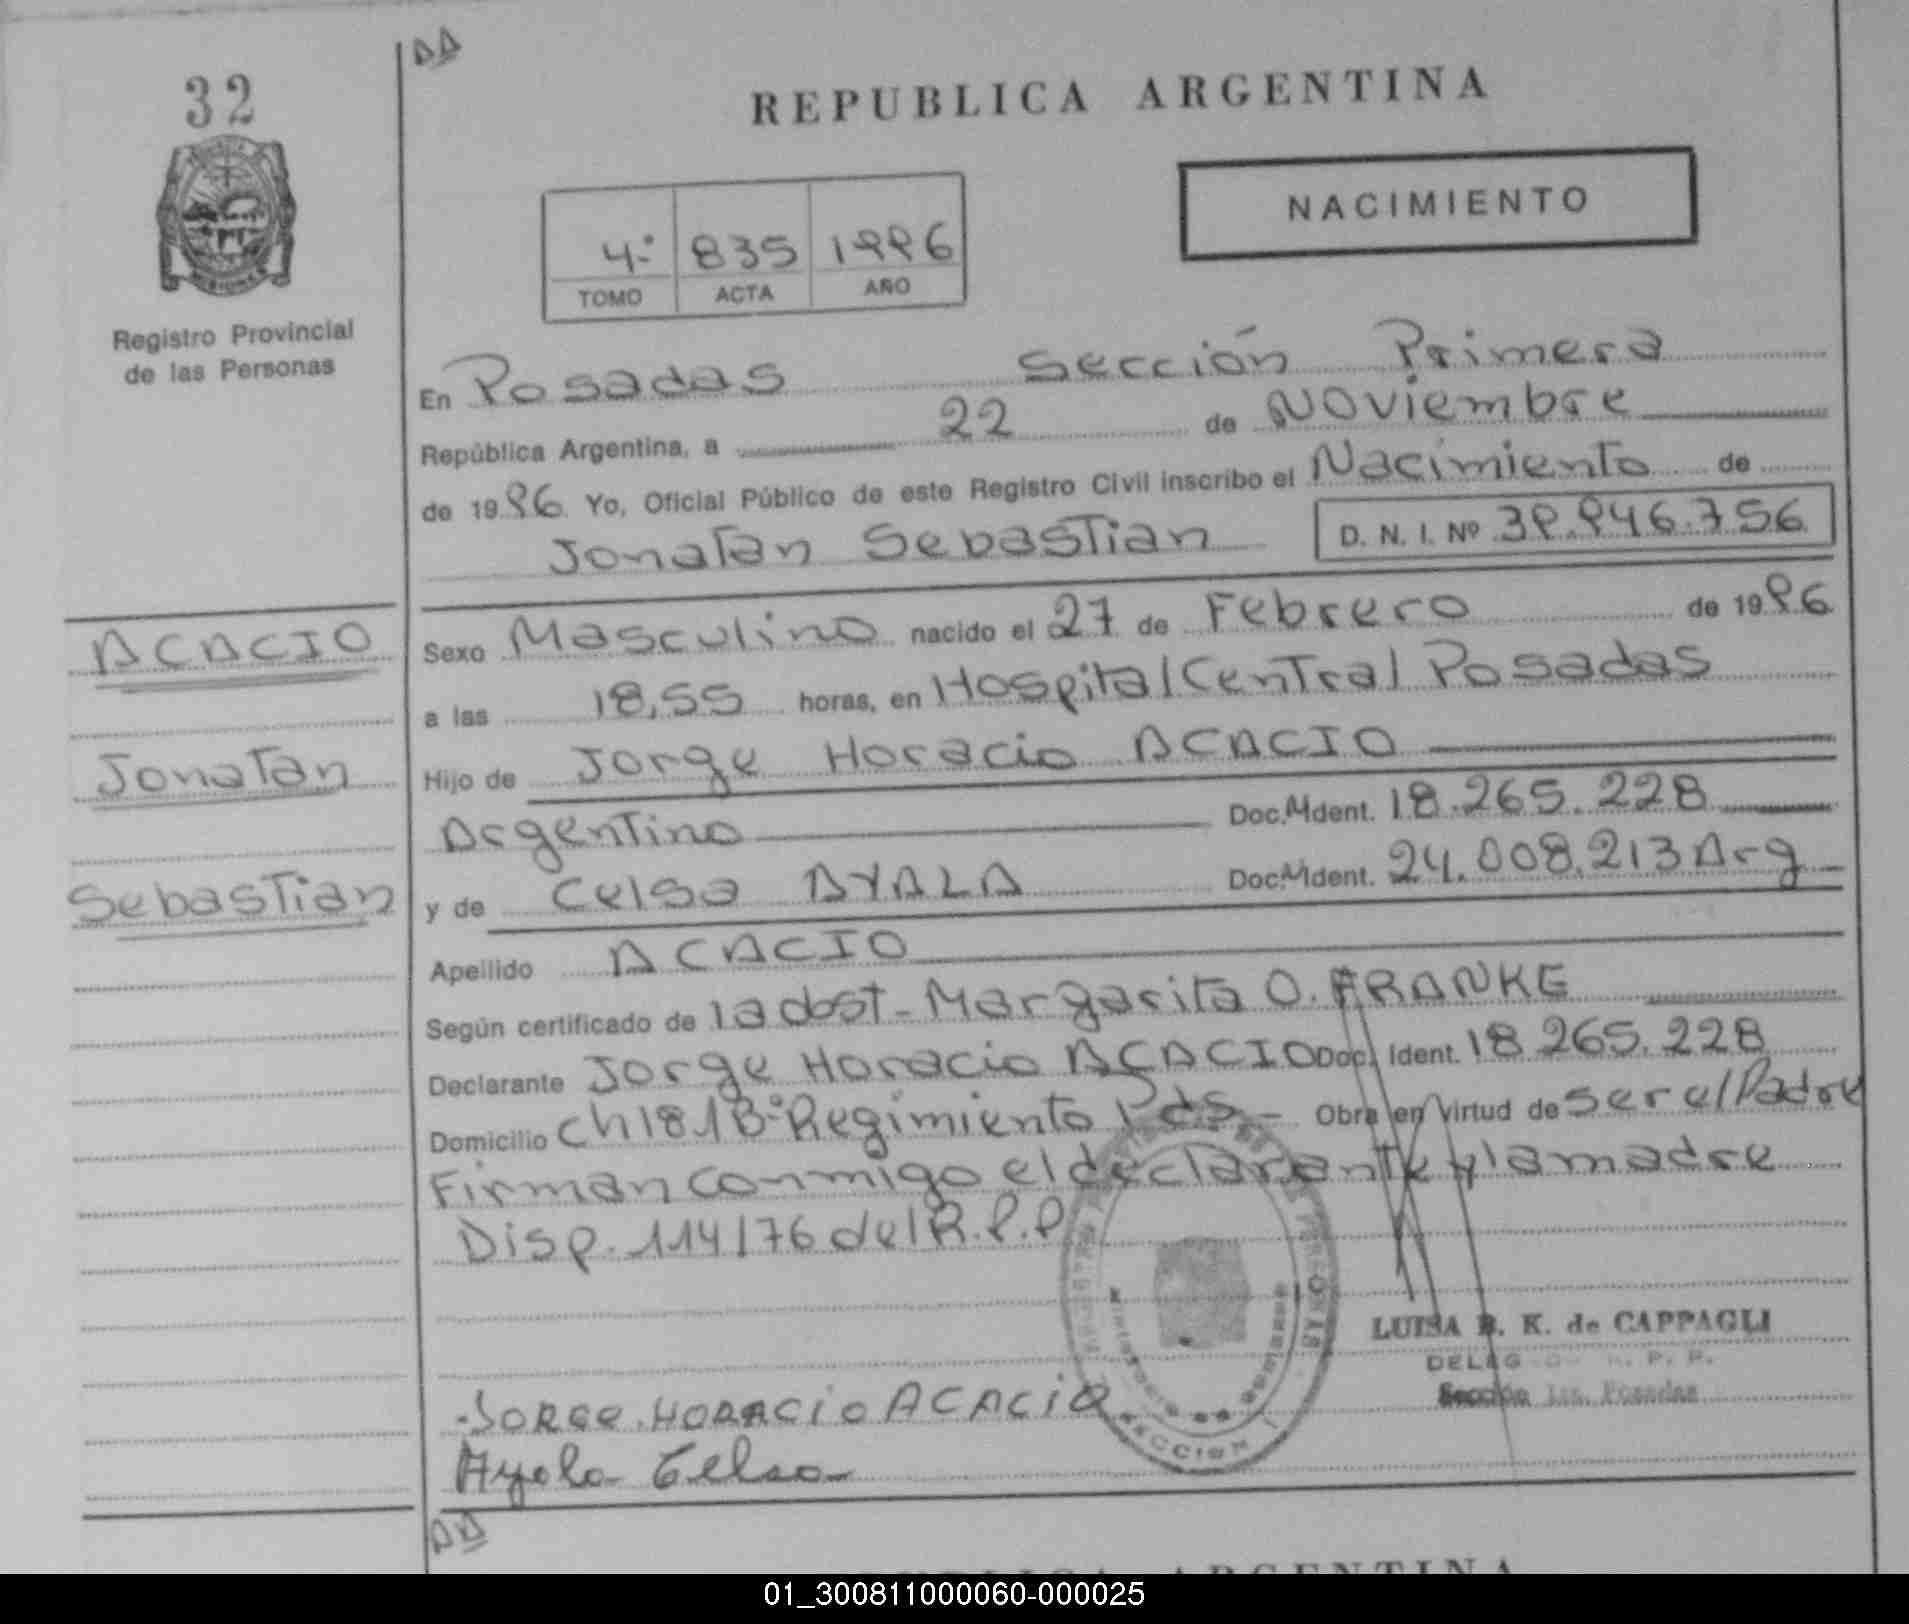 32
REPUBLICA ARGENTINA
NACIMIENTO
4º 835 1996
TOMO ACTA AÑO
Registro Provincial
de las Personas
En Posadas Sección Primera
República Argentina, a 22 de Noviembre
de 1996 Yo, Oficial Público de este Registro Civil inscribo el Nacimiento de
Jonatan Sebastian D. N. I. Nº 39.946.756
ACACIO
Jonatan
Sebastian
Sexo Masculino nacido el 27 de Febrero de 1996
a las 18,55 horas, en Hospital Central Posadas
Hijo de Jorge Horacio ACACIO
Argentino Doc. Ident. 18.265.228
y de Celsa AYALA Doc. Ident. 24.008.213 Arg
Apellido ACACIO
Según certificado de la obst- Margarita O. FRANKE
Declarante Jorge Horacio ACACIO Doc. Ident. 18.265.228
Domicilio Ch 181 Bº Regimiento Pds- Obra en virtud de ser el Padre
Firman conmigo el declarante y la madre
Disp. 114/76 del R.P.P
LUISA B. K. de CAPPAGLI
R. P. P.
Sección 1ra. Posadas
JORGE HORACIO ACACIO
Ayala Celsa
SECCION 1
REPUBLICA ARGENTINA
01_300811000060-000025